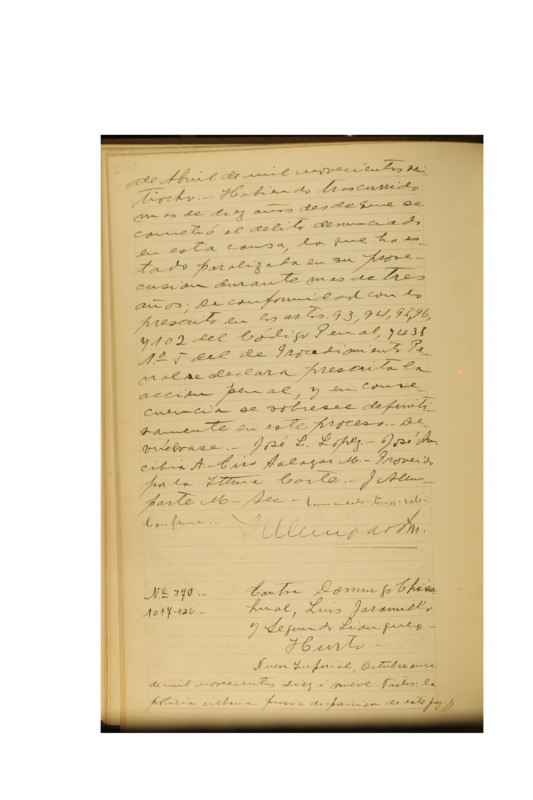 de Abril de mil novecientos vein
tiocho.- Habiendo trascurrido
mas de diez años desde que se
cometió el delito denunciado
en esta causa, la que ha es-
tado paralizada en su prose-
cusion durante mas de tres
años; de conformidad con lo
prescrito en los artos. 93, 94, 95, 96,
y 102 del Código Penal, y 438
Nº 5 del de Procedimiento Pe-
nal se declara prescrita la
acción penal, y en conse-
cuencia se sobresee definiti-
vamente en este proceso.- De-
vuélvase.- José L. Lopez- José An
cibia A.- Ciro Salazar M.- Proveido
por la Iltma Corte.- J Alem-
parte M- Sec-
Conforme.-
Nº 370.-
1017-926.-
Contra Domingo
Luis Jaramillo
y Segundo
Hurto.-
Nueva Imperial, Octubre once
de mil novecientos diez i nueve. Vistos: la
policia urbana puso a disposicion de este juz